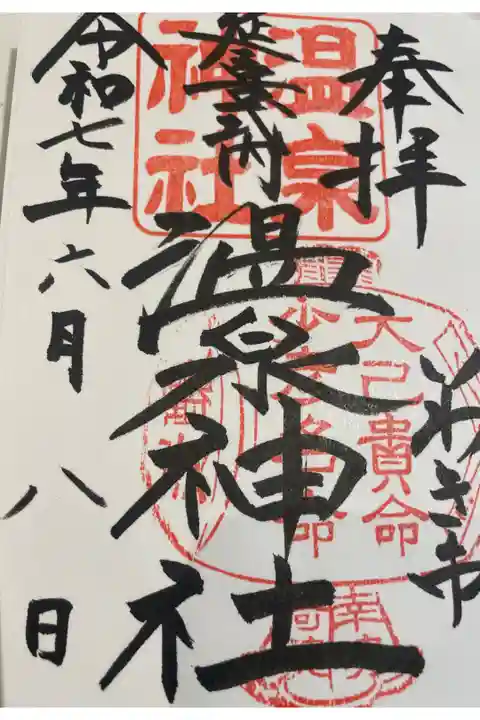 奉拝
いわき市
延喜式内
温泉神社
令和七年六月八日
温泉
神社
大己貴命
少彦名命